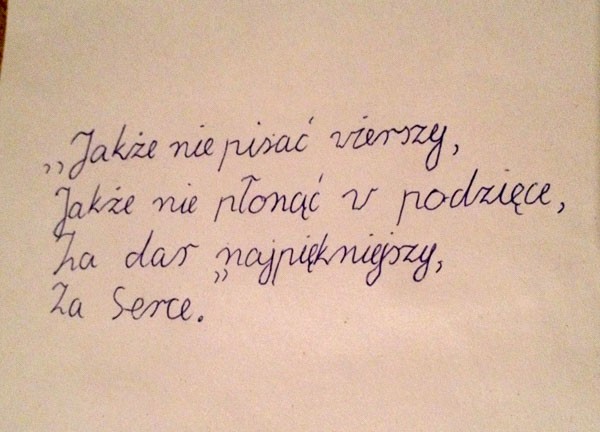 „Jakże nie pisać wierszy,
Jakże nie płonąć w podzięce,
Za dar najpiękniejszy,
Za Serce.”